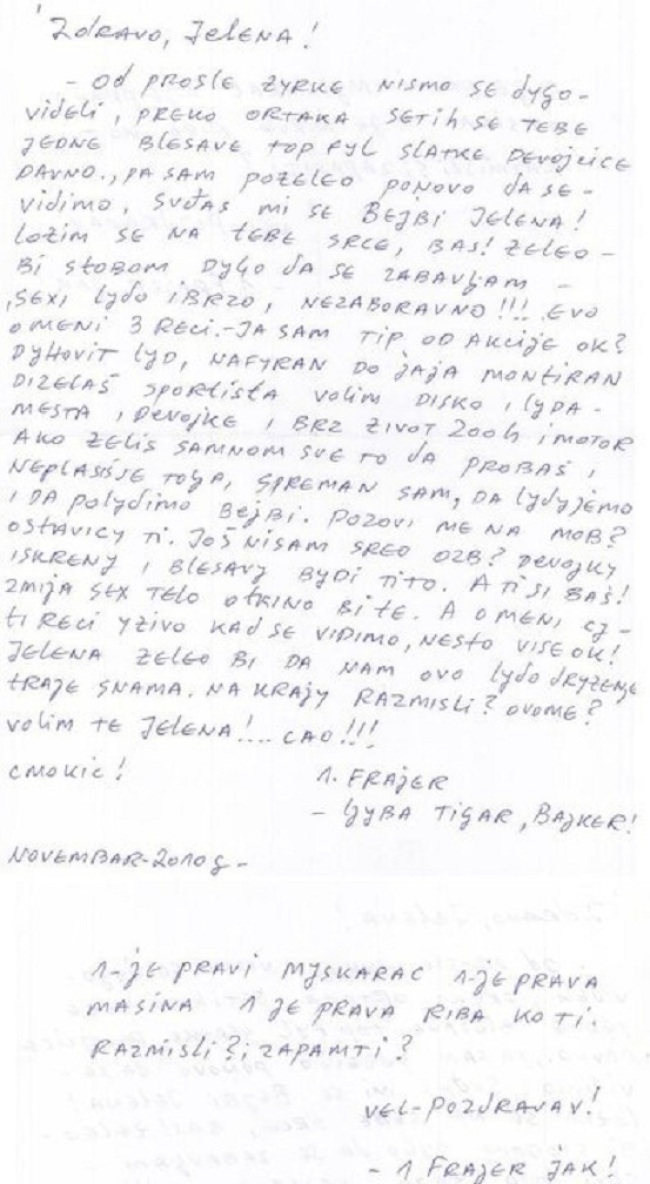 Zdravo, Jelena!
- Od prosle zyrke nismo se dygo-
videli, preko ortaka setih se tebe
jedne blesave top fyl slatke devojcice
davno., pa sam pozeleo ponovo da se-
vidimo, svđas mi se bejbi Jelena!
lozim se na tebe srce, bas! zeleo-
bi stobom dygo da se zabavjam -
,sexi lydo i brzo, nezaboravno!!! Evo
omeni 3 reci.-Ja sam tip od akcije ok?
dyhovit lyd, nafyran do jaja montiran
dizelaš sportista volim disko, i lyda-
mesta, i devojke i brz zivot 200h i motor
ako zelis samnom sve to da probaš i
neplasisje toga, spreman sam, da lydyjemo
i da polydimo bejbi. Pozovi me na mob?
ostavicy ti. Još nisam sreo ozb? devojky
iskreny i blesavy bydi tito. A ti si baš!
zmija sex telo otkino bi te. A omeni cj-
ti reci yzivo kad se vidimo, nesto vise ok!
Jelena zeleo bi da nam ovo lydo dryzenje
traje snama. Na krajy razmisli? ovome?
volim te Jelena!... cao!!!
cmokic!
1. Frajer
- Ljyba Tigar, Bajker!
Novembar-2010g-
1-je pravi myskarac 1-je prava
masina 1 je prava riba ko ti
razmisli?; zapamti?
vel-pozdravav!
- 1 Frajer jak!